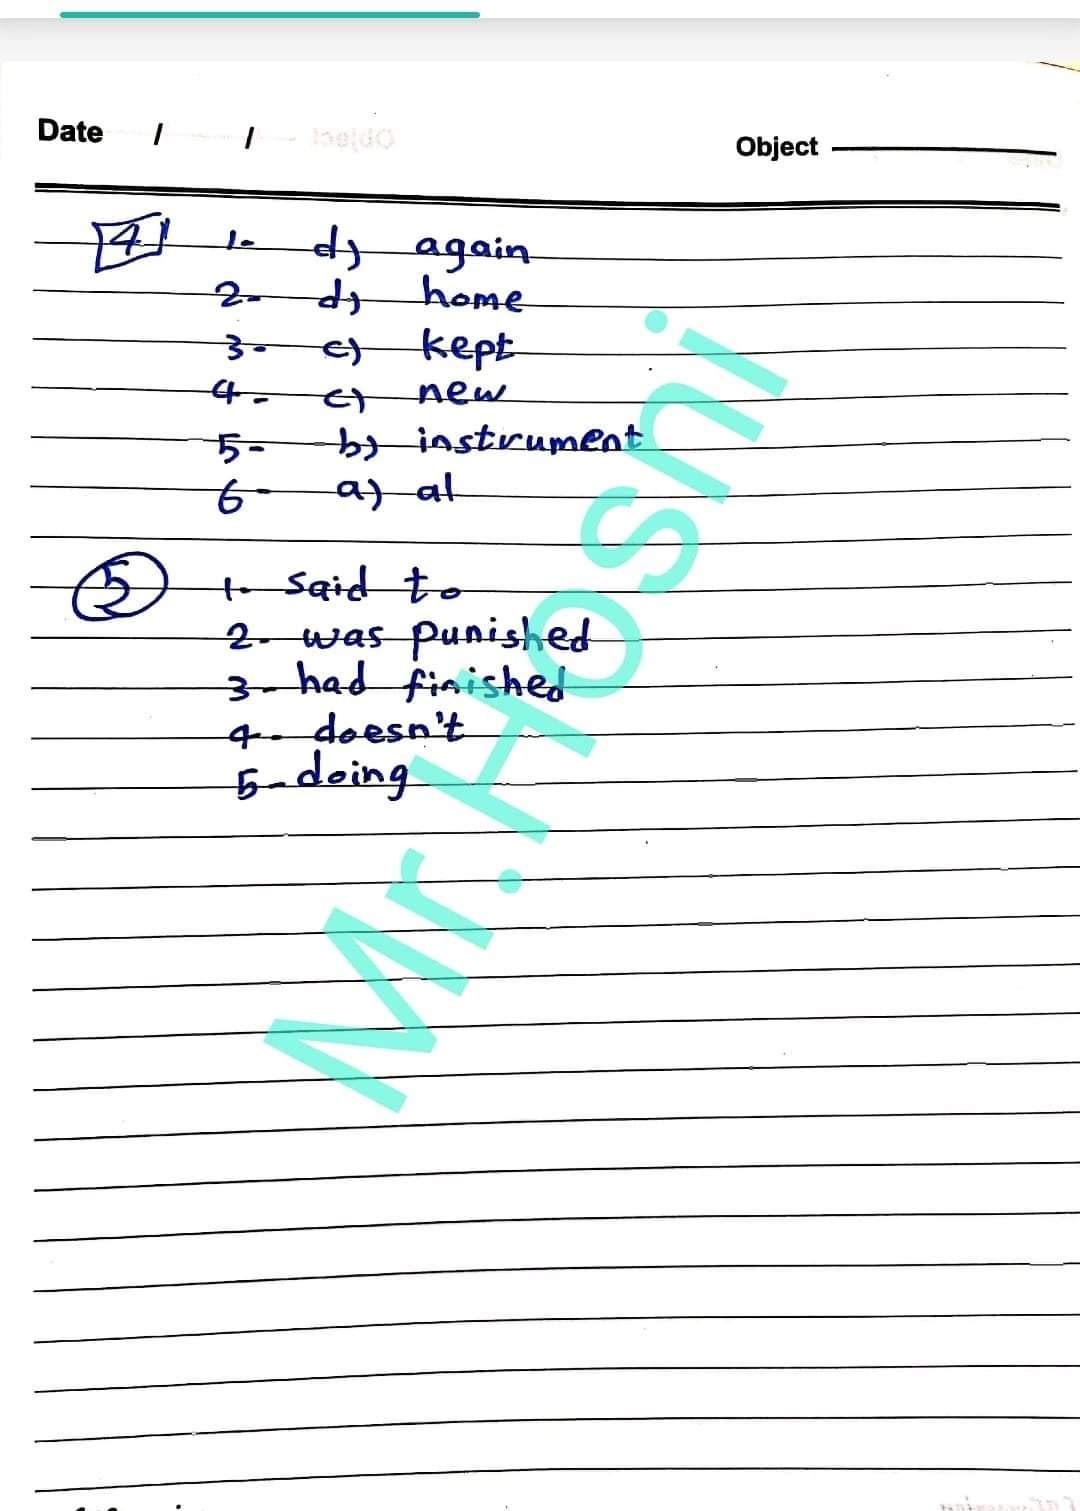 Date / /
Object
4 1- d) again
2- d) home
3- c) kept
4- c) new
5- b) instrument
6- a) al
5 1- said to
2- was punished
3- had finished
4- doesn't
5- doing
Mr.Hosni